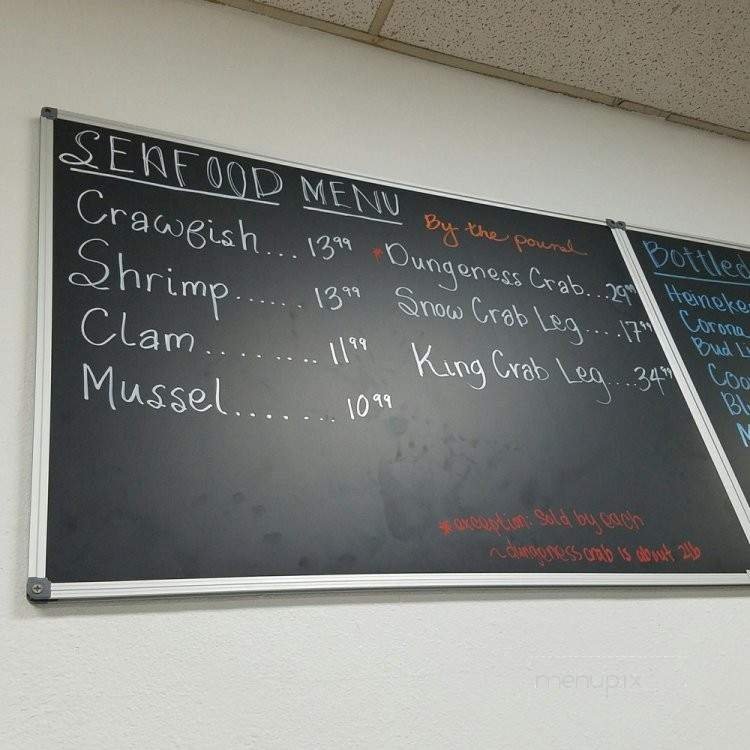 SEAFOOD MENU
By the pound
Crawfish... 13⁹⁹
Shrimp....... 13⁹⁹
Clam.......... 11⁹⁹
Mussel....... 10⁹⁹
*Dungeness Crab...29⁹⁹
Snow Crab Leg.....17⁹⁹
King Crab Leg...34⁹⁹
*exception: Sold by each
~dungeness crab is about 2lb
Bottled
Heineke
Corona
Bud Li
Coo
Bl
M
menupix